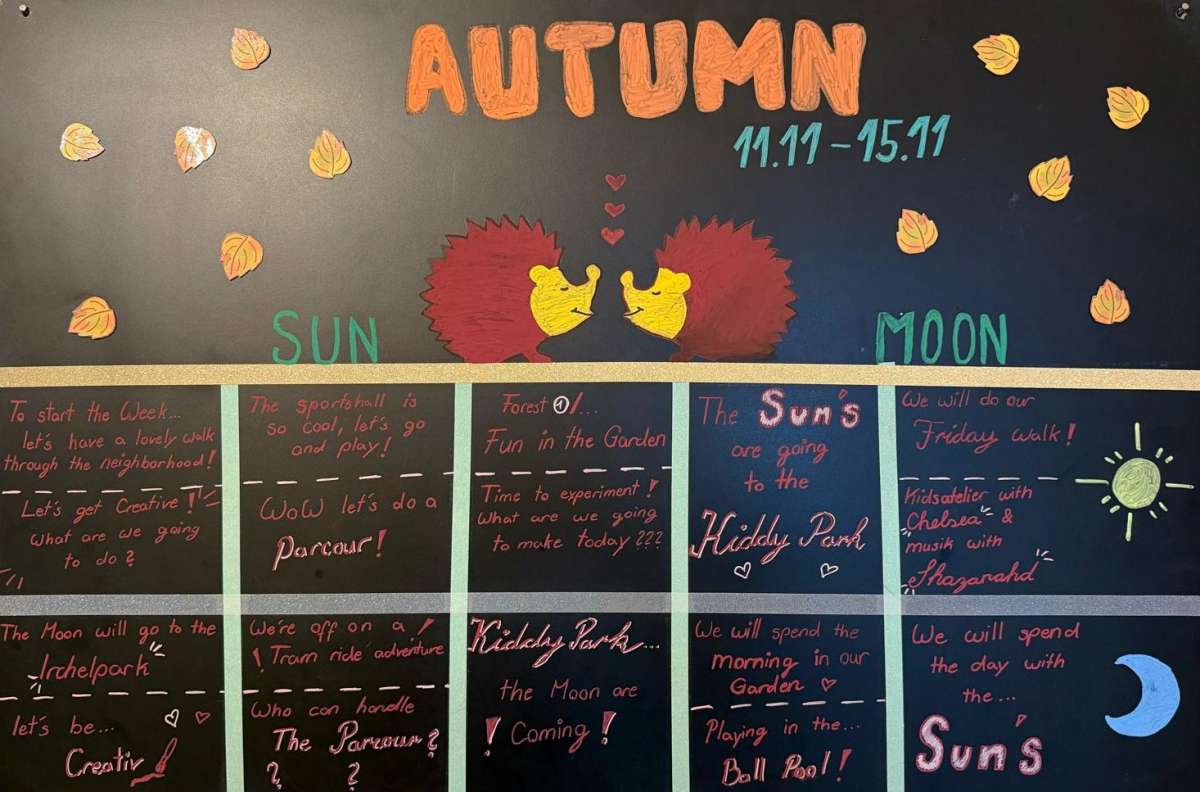 AUTUMN
11.11 – 15.11
SUN
MOON
To start the Week...
let's have a lovely walk
through the neighborhood!
Let's get Creative!
What are we going
to do?
The sportshall is
so cool, let's go
and play!
WoW let's do a
Parcour!
Forest 1/...
Fun in the Garden
Time to experiment!
What are we going
to make today???
The Sun's
are going
to the
Kiddy Park
We will do our
Friday walk!
Kidsatelier with
Chelsea &
musik with
Shazanahd
The Moon will go to the
Irchelpark
let's be...
Creativ
We're off on a !
! Tram ride adventure
Who can handle
The Parcour?
? ?
Kiddy Park...
the Moon are
! Coming!
We will spend the
morning in our
Garden
Playing in the...
Ball Pool!
We will spend
the day with
the...
Sun's